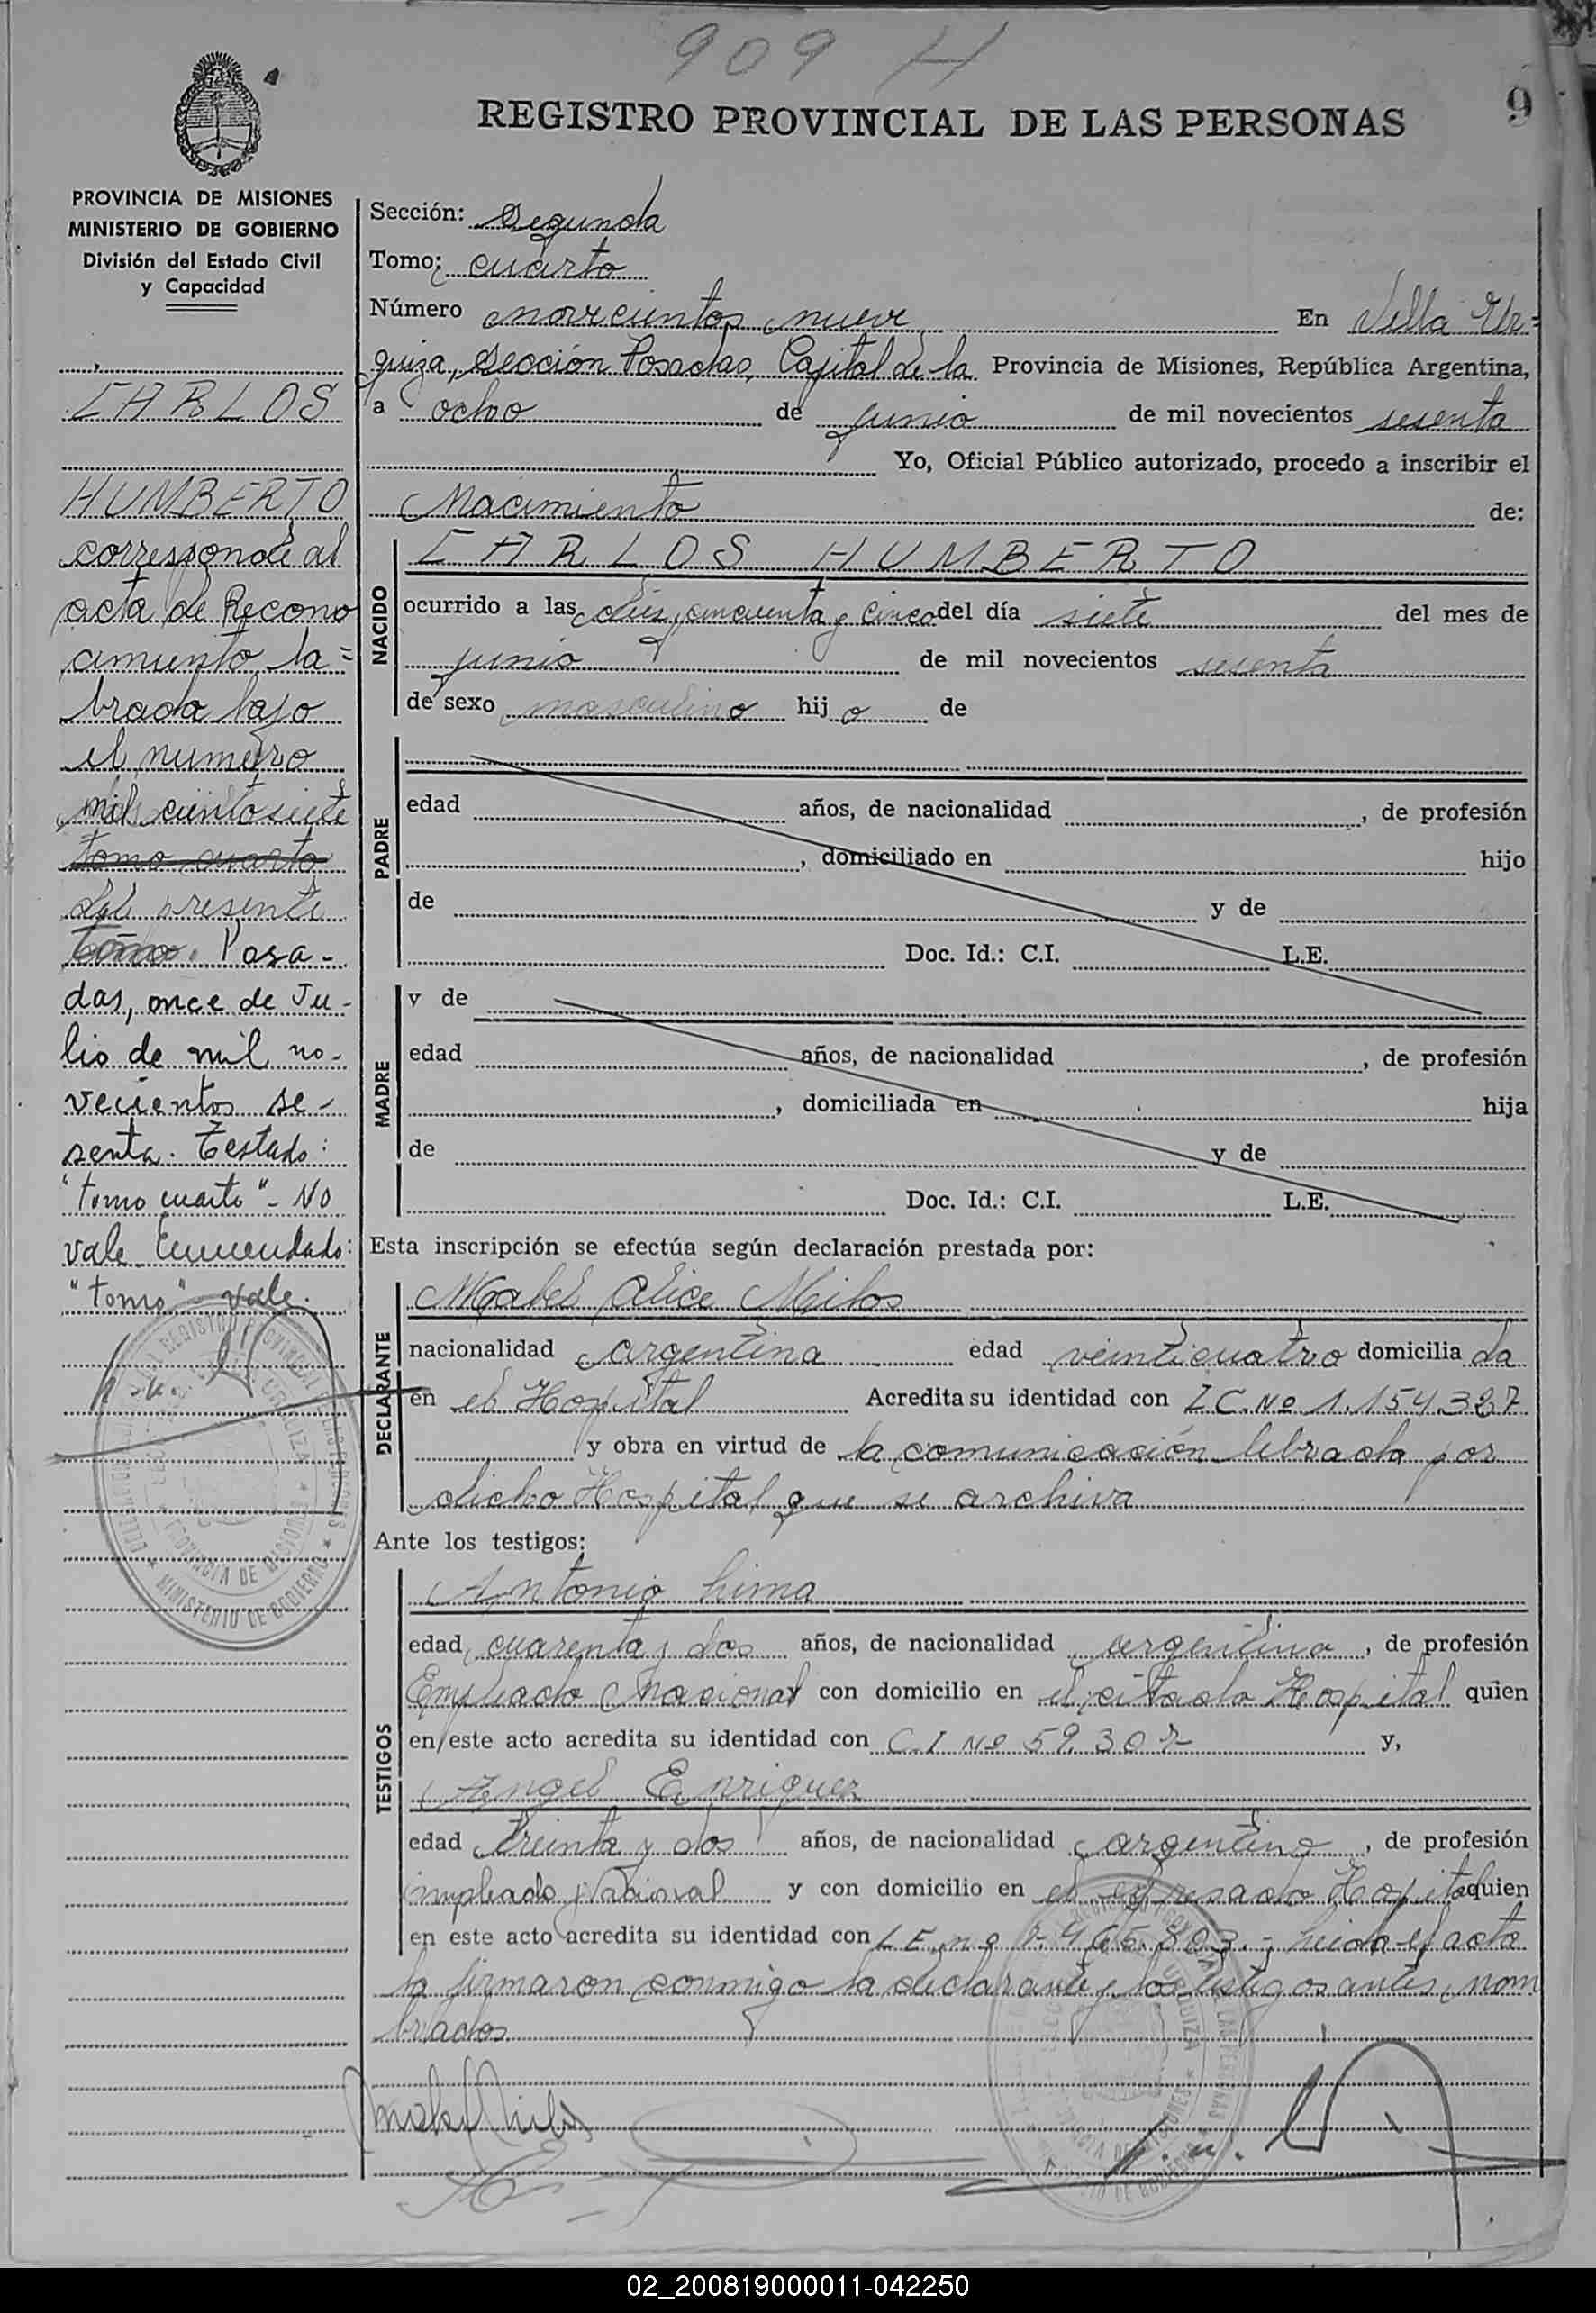 909 H
9
REGISTRO PROVINCIAL DE LAS PERSONAS
PROVINCIA DE MISIONES
MINISTERIO DE GOBIERNO
División del Estado Civil
y Capacidad
CARLOS
HUMBERTO
corresponde al
acta de Recono
cimiento la=
brada bajo
el numero
mil cientosiete
tomo cuarto
del presente
tomo. Posa-
das, once de Ju-
lio de mil no-
vecientos se-
senta. Testado:
"tomo cuarto" - No
vale Enmendado:
"tomo" vale.
Sección: Segunda
Tomo: cuarto
Número novecientos nueve En Villa Ur=
quiza, Sección Posadas, Capital de la Provincia de Misiones, República Argentina,
a ocho de junio de mil novecientos sesenta
Yo, Oficial Público autorizado, procedo a inscribir el
Nacimiento de:
NACIDO
CARLOS HUMBERTO
ocurrido a las diez y cincuenta y cinco del día siete del mes de
junio de mil novecientos sesenta
de sexo masculino hijo de
PADRE
edad años, de nacionalidad , de profesión
, domiciliado en hijo
de y de
Doc. Id.: C.I. L.E.
MADRE
y de
edad años, de nacionalidad , de profesión
, domiciliada en hija
de y de
Doc. Id.: C.I. L.E.
Esta inscripción se efectúa según declaración prestada por:
DECLARANTE
Mabel Alice Milos
nacionalidad argentina edad veinticuatro domiciliada
en el Hospital Acredita su identidad con L C. Nº 1.154.327
y obra en virtud de la comunicación librada por
dicho Hospital que se archiva
Ante los testigos:
TESTIGOS
Antonio Lima
edad cuarenta y dos años, de nacionalidad argentino, de profesión
Empleado Nacional y con domicilio en el citado Hospital quien
en este acto acredita su identidad con C.I Nº 59.307 y,
Angel Enriquez
edad treinta y dos años, de nacionalidad argentino, de profesión
empleado Nacional y con domicilio en el expresado Hospital quien
en este acto acredita su identidad con L E nº 7.465.803.- Leida el acta
la firmaron conmigo la declarante y los testigos antes nom
brados
REGISTRO PROVINCIAL DE LAS PERSONAS
MINISTERIO DE GOBIERNO
PROVINCIA DE MISIONES
02_200819000011-042250